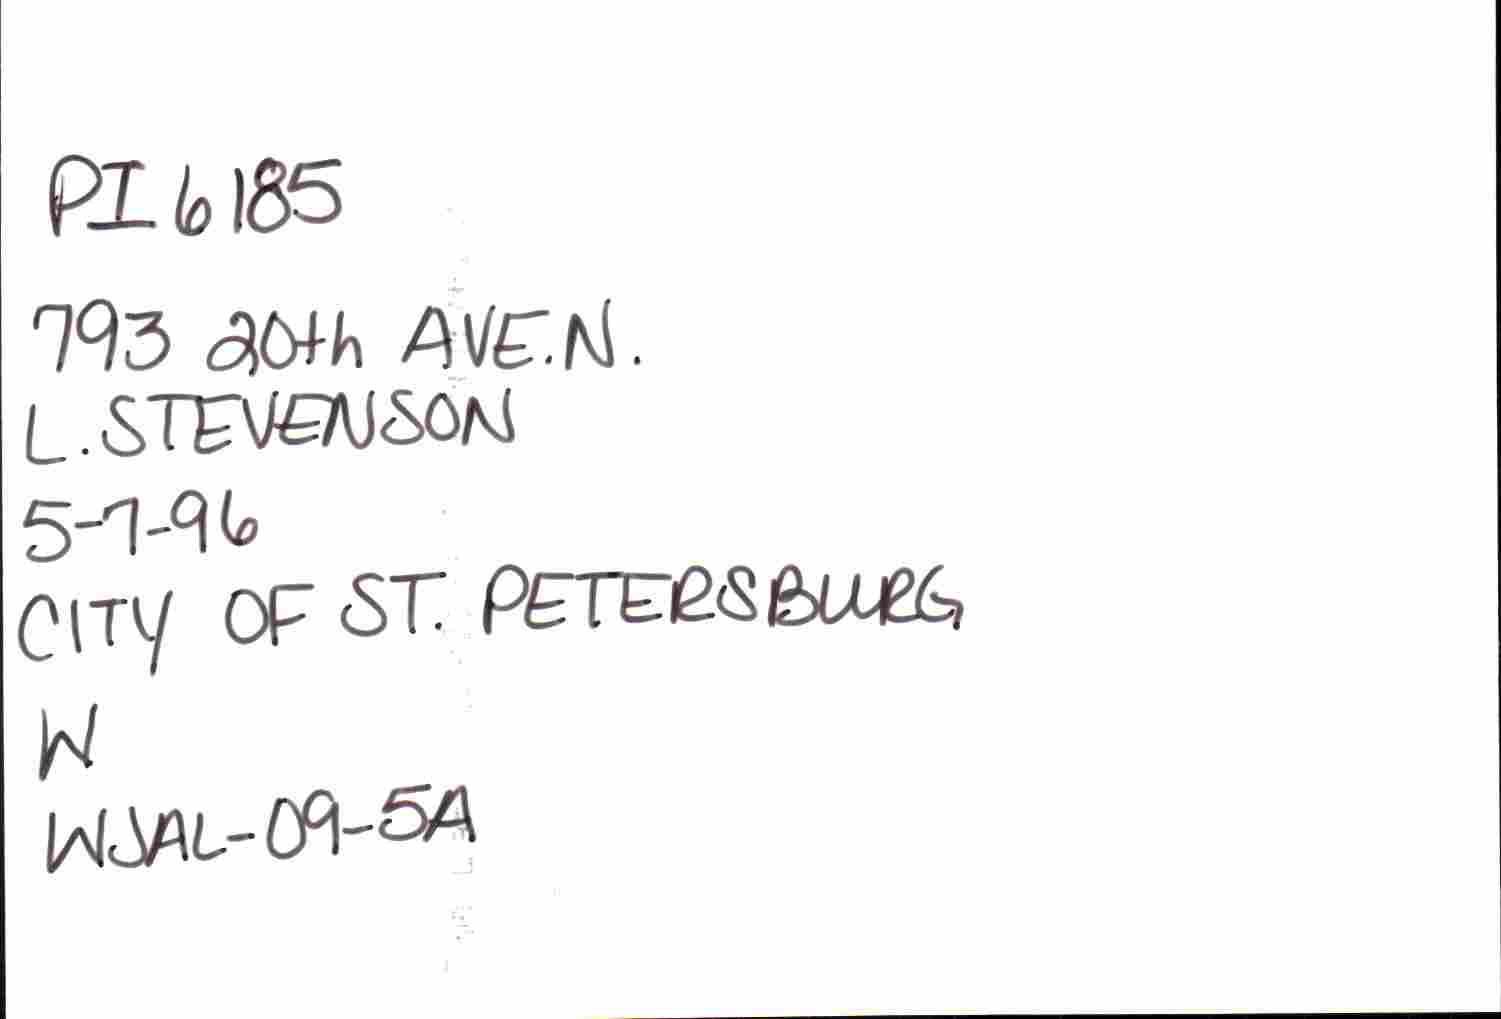 PI 6185
793 20th AVE.N.
L. STEVENSON
5-7-96
CITY OF ST. PETERSBURG
W
WJAL-09-5A